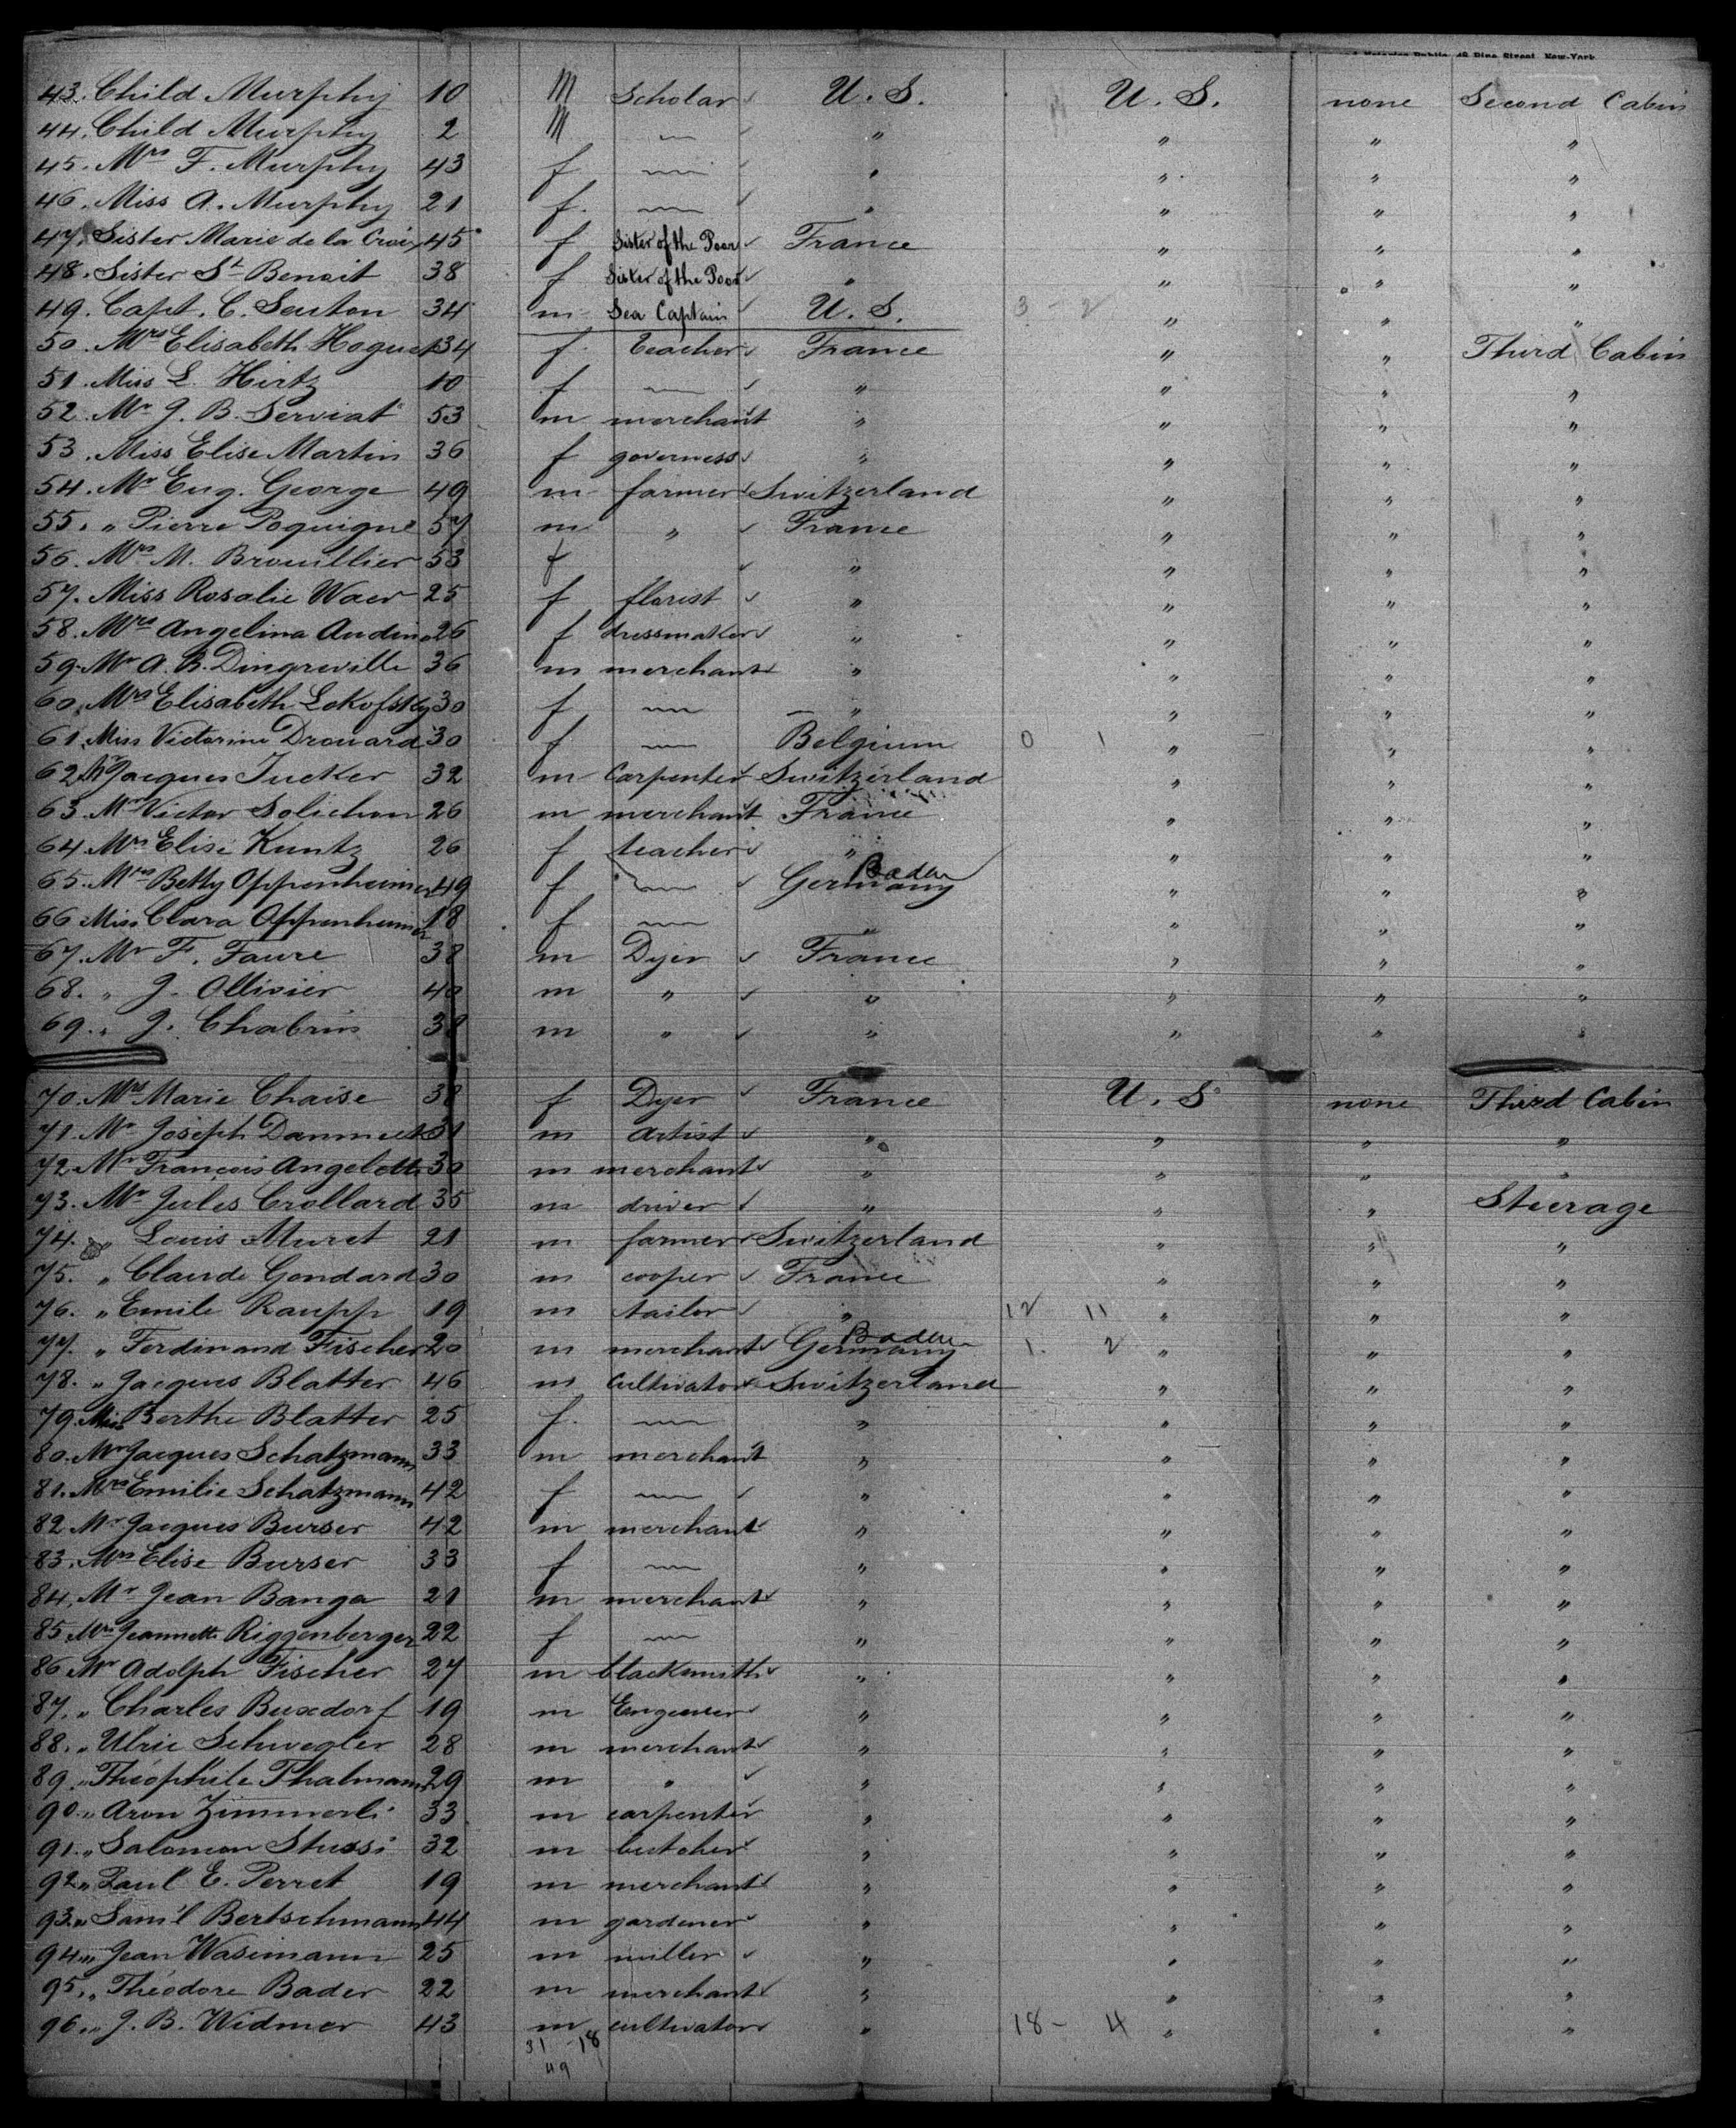 48 Pine Street, New-York
43. Child Murphy 10 M Scholar U. S. U. S. none Second Cabin
44. Child Murphy 2 M — " " " "
45. Mrs F. Murphy 43 f — " " " "
46. Miss A. Murphy 21 f. — " " " "
47. Sister Marie de la Croix 45 f Sister of the Poor France " " "
48. Sister St Benoit 38 f Sister of the Poor " " " "
49. Capt. C. Senton 34 m Sea Captain U. S. 3 - 2 " " "
50. Mrs Elisabeth Hoguet 34 f teacher France " " Third Cabin
51. Miss L. Hirtz 10 f — " " " "
52. Mr J. B. Serviat 53 m merchant " " " "
53. Miss Elise Martin 36 f governess " " " "
54. Mr Eug. George 49 m farmer Switzerland " " "
55. " Pierre Poquigné 57 m " France " " "
56. Mrs M. Brouillier 53 f " " " "
57. Miss Rosalie Waer 25 f florist " " " "
58. Mrs Angelina Audin 26 f dressmaker " " " "
59. Mr A. B. Dingreville 36 m merchant " " " "
60. Mrs Elisabeth Lokofsky 30 f — " " " "
61. Miss Victorine Drouard 30 f — Belgium 0 1 " " "
62. Mr Jacques Jucker 32 m Carpenter Switzerland " " "
63. Mr Victor Solichon 26 m merchant France " " "
64. Mrs Elise Kuntz 26 f teacher " " " "
65. Mrs Betty Oppenheimer 49 f — Germany Baden " " "
66. Miss Clara Oppenheimer 18 f — " " " "
67. Mr F. Faure 38 m Dyer France " " "
68. " J. Ollivier 40 m " " " " "
69. " J. Chabrin 38 m " " " " "
70. Mrs Marie Chaise 38 f Dyer France U. S. none Third Cabin
71. Mr Joseph Danmuck 31 m Artist " " " "
72. Mr François Angeletti 30 m merchant " " " "
73. Mr Jules Crollard 35 m driver " " " Steerage
74. " Louis Muret 21 m farmer Switzerland " " "
75. " Claude Gondard 30 m cooper France " " "
76. " Emile Raupp 19 m tailor " 12 11 " " "
77. " Ferdinand Fischer 20 m merchant Germany Baden 1. 2 " " "
78. " Jacques Blatter 46 m Cultivator Switzerland " " "
79. Miss Berthe Blatter 25 f. — " " " "
80. Mr Jacques Schatzmann 33 m merchant " " " "
81. Mrs Emilie Schatzmann 42 f — " " " "
82. Mr Jacques Burser 42 m merchant " " " "
83. Mrs Elise Burser 33 f — " " " "
84. Mr Jean Banga 21 m merchant " " " "
85. Mrs Jeannette Riggenberger 22 f — " " " "
86. Mr Adolph Fischer 27 m blacksmith " " " "
87. " Charles Buxdorf 19 m Engineer " " " "
88. " Ulric Schwegler 28 m merchant " " " "
89. " Théophile Thalmann 29 m " " " " "
90. " Aron Zimmerli 33 m carpenter " " " "
91. " Salomon Stussi 32 m butcher " " " "
92. " Paul E. Perret 19 m merchant " " " "
93. " Sam'l Bertschmann 44 m gardener " " " "
94. " Jean Wasemann 25 m miller " " " "
95. " Théodore Bader 22 m merchant " " " "
96. " J. B. Widmer 43 m cultivator " 18 - 4 " " "
31 - 18
49